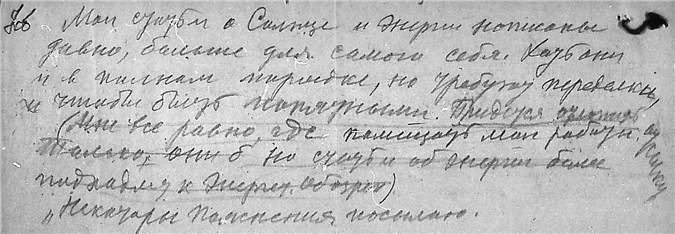 Мои статьи о Солнце и энергии написаны
давно, больше для самого себя. Хотя они
и в полном порядке, но требуют переделки,
чтобы быть понятными. Придется
(Мне все равно, где помещать мои работы.
Только, они б, но статьи об энергии более
подходят к
Некоторые пояснения посылаю.